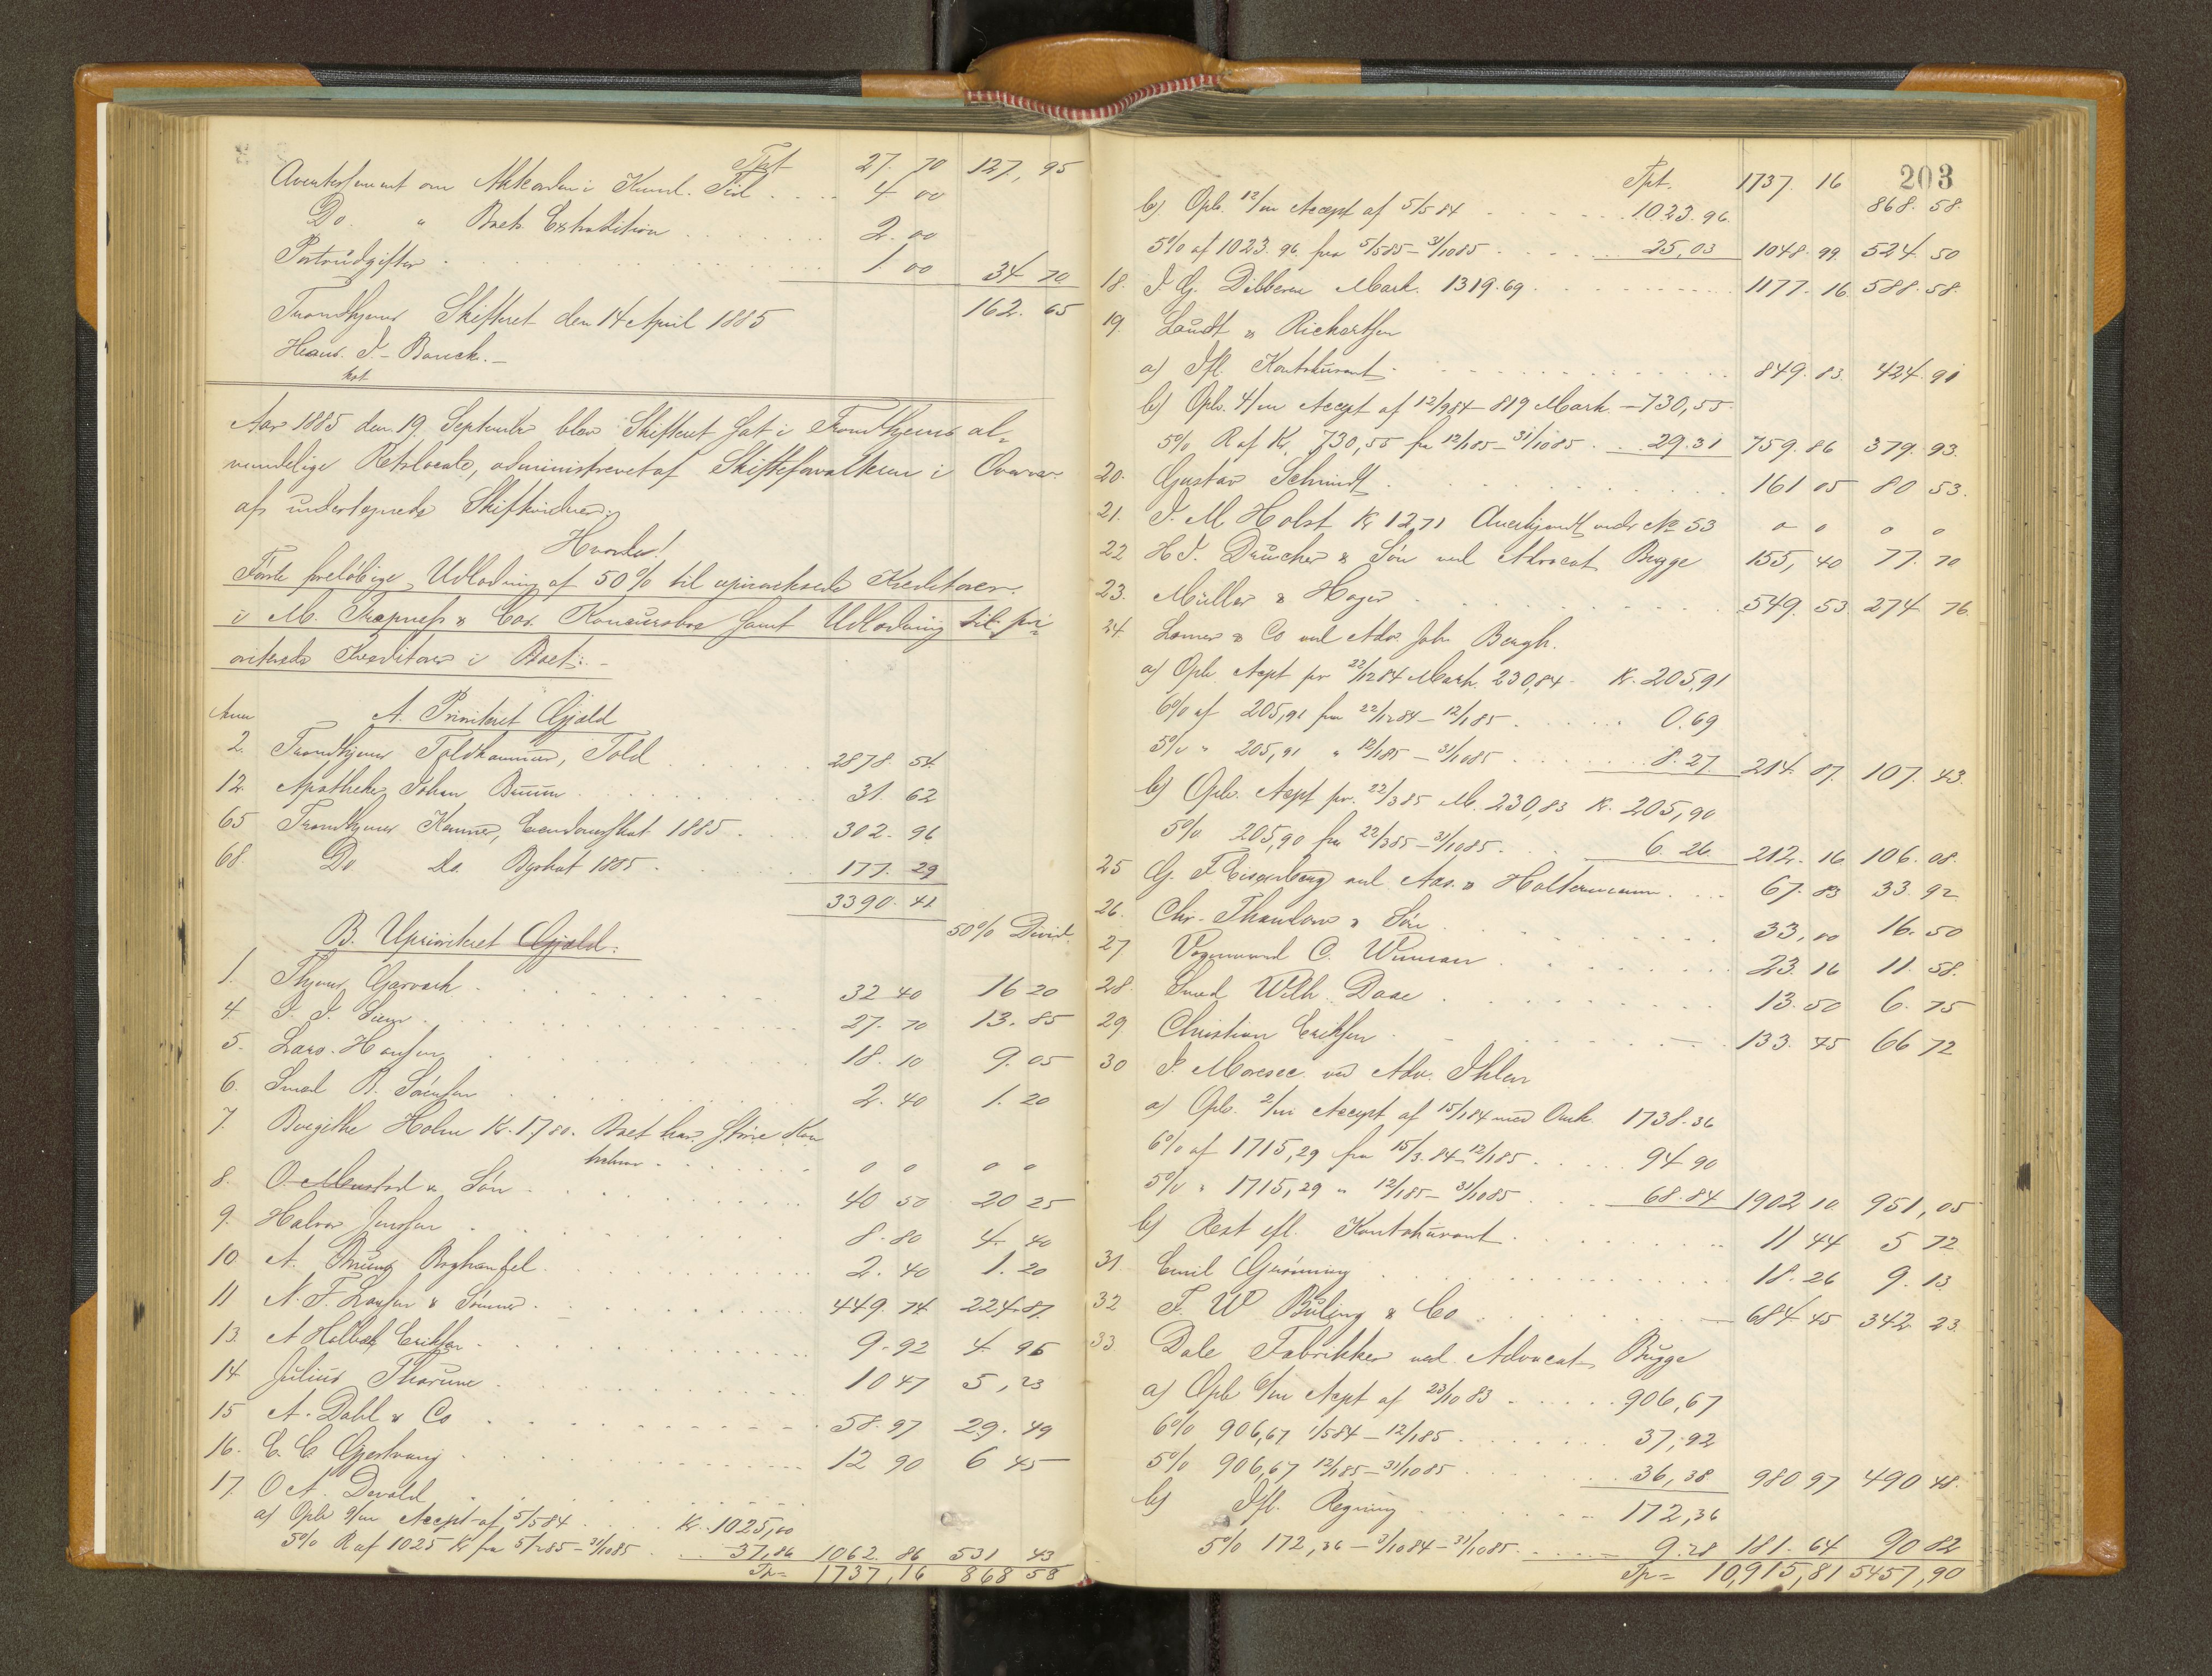 Tpt 27. 70 127, 95
Avertissement om Akkorden i Kund. Tid. 4 00
Do. " Boets Extradition 2. 00
Portoudgifter 1. 00 34 70
162. 65
Trondhjems Skifteret den 14 April 1885
Hans. J. Bauck.-
kst.
Aar 1885 den 19. September blev Skifteret sat i Trondhjems al-
mindelige Retslocale, administreret af Skifteforvalteren i Overvær
af undertegnede Skiftevidner;
Hvorda!
Første foreløbige Udlodning af 50% til upriviligerede Kreditorer
i M. Trapness & Co's. Konkursbo samt Udlodning til pri-
oriterede Kreditorer i Boet:-
Anm A. Prioriteret Gjæld
2. Trondhjems Toldkammer, Told 2878. 54.
12. Apotheker Johan Buum 31. 62
65 Trondhjems Kemner, Eiendomsskat 1885 302. 96
68. Do do. Byskat 1885 177. 29
3390. 41
B. Uprioriteret Gjæld: 50% Divid.
1. Thjems Garvack 32 40 16 20
4. J. J. Siem 27. 70 13. 85
5. Lars. Hansen 18. 10 9. 05
6. Smed B. Sørensen 2. 40 1. 20
7. Bergithe Holm Kr. 1.780. Boet har større Kon
trakrav 0 0 0 0
8. O. Mustad & Søn 40 50 20 25
9. Halvor Jenssen 8. 80 4. 40
10 A. Bruns Boghandel 2. 40 1. 20
11 N. F. Larsen & Sønner 449. 74 224. 87.
13. A Holbæk Eriksen 9. 92 4. 96
14 Julius Thorune 10 47 5, 23
15 A. Dahl & Co 58. 97 29. 49
16. C. C. Gjestvang 12 90 6 45
17. O A. Devold
a) Opb 9/m Accept af 5/5 84 Kr. 1025,00
5% R af 1025 Kr fra 5/2 85 - 31/10 85 37,86 1062. 86 531 43
Tp= 1737,16 868 58
203
Tpt. 1737. 16 868. 58.
b) Opb. 12/m Accept af 5/5 84 1023. 96.
5% af 1023. 96 fra 5/5 85 - 31/10 85 25,03 1048. 99. 524. 50
18. J G. Dibbern Mark. 1319.69 1177. 16. 588. 58.
19. Laudt & Richartsen
a) Ifl. Kontokurant 849. 83. 424. 91
b) Opb. 4/m Accept af 12/9 84 - 819 Mark. - 730,55.
5% R af Kr. 730,55 fra 12/1 85 - 31/10 85 29.31 759. 86 379. 93.
20. Gustav Schmidt 161 05 80 53.
21. J. M Holst Kr 1271 Anerkjendt under No 53 0 0 0 0
22 H J. Drucker & Søn ved Advocat Bugge 155, 40 77. 70
23. Müller & Hager 549. 53. 274 76.
24. Lorner & Co ved Adv. Joh. Bergh.
a) Opb. Acpt pr 22/12 84 Mark. 230,84 - Kr. 205,91
6% af 205,91 fra 22/12 84 - 12/1 85 0.69
5% " 205,91 " 12/1 85 - 31/10 85 8.27. 214. 87. 107. 43.
b) Opb. Acpt pr. 22/3 85 M. 230,83 Kr. 205,90
5% 205,90 fra 22/3 85 - 31/10 85 6. 26. 212. 16. 106. 08.
25 G. F Eisenberg ved Aas. & Holtermann 67. 83 33. 92
26. Chr. Thaulow & Søn 33,00 16. 50
27. Vognmand C. Wiman 23. 16 11. 58.
28. Smed Wilh. Daae 13. 50 6. 75
29 Christian Eriksen 133. 45 66 72
30 P. Moresee ved Adv. Ihlen
a) Opb. 2/m Accept af 15/1 84 med Omk. 1738. 36
6% af 1715,29 fra 15/3. 84 - 12/1 85 94 90
5% " 1715,29 " 12/1 85 - 31/10 85 68. 84 1902 10. 951,05
b) Rest ifl. Kontokurant 11 44 5 72
31. Emil Grønning 18. 26 9. 13
32 F. W Büling & Co 684 45 342 23.
33 Dale Fabrikker ved Advocat Bugge
a) Opb 6/m Acpt af 23/10 83 906,67
6% 906,67 1/5 84 - 12/1 85 37,92
5% 906,67 12/1 85 - 31/10 85 36,38 980 97 490 48.
b) Ifl. Regning 172,36
5% 172,36 - 3/10 84 - 31/10 85 9. 28 181. 64 90 82
Tp= 10,915,81 5457,90